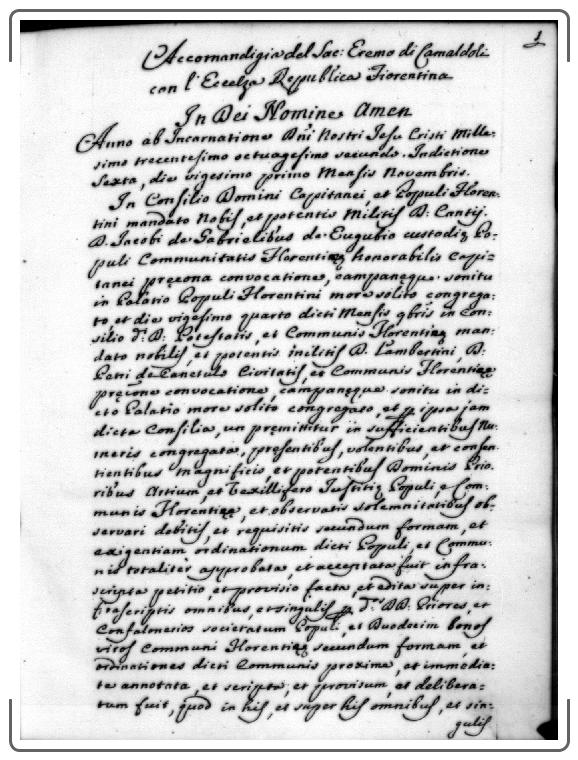 1
Accomandigia del Sac: Eremo di Camaldoli
con l'Eccelsa Republica Fiorentina
In Dei Nomine Amen
Anno ab Incarnatione Dni Nostri Jesu Cristi Mille=
simo trecentesimo octuagesimo secundo. Indictione
Sexta, die vigesimo primo Mensis Novembris.
In Consilio Domini Capitanei, et Populi Floren=
tini mandato Nobis, et potentis Militis D: Cantis.
D. Jacobi de Gabrielibus de Eugubio custodis Po=
puli Communitatis Florentię honorabilis Capi=
tanei pręcona convocatione, campanęque sonitu
in Palatio Populi Florentini more solito congrega=
to, et die vigesimo quarto dicti Mensis 9bris in Con=
silio d: D: Potestatis, et Communis Florentię man=
dato nobilis, et potentis militis D. Lambertini, D:
Petri de Civitatis, et Communis Florentię
pręcone convocatione, campanęque sonitu in di=
cto Palatio more solito congregato, et p ipsa jam
dicta Consilia, un pręmittitur in sufficientibus Nu=
meris congregata, presentibus, volentibus, et consen=
tientibus magnificis et potentibus Dominis Prio=
ribus Artium, et Vexillifero Justitię Populi, e Com=
munis Florentię, et observatis solemnitatibus ob=
servari debitis, et requisitis secundum formam, et
exigentiam ordinationum dicti Populi, et Commu=
nis totaliter approbata, et acceptata fuit infra=
scripta petitio, et provisio facta, et edita super in=
frascriptis omnibus, et singulis p d: DD: Priores, et
Confalonerios societatum Populi, et Duodecim bonos
viros Communi Florentię secundum formam, et
ordinationes dicti Communis proxime, et immedia=
te annotata, et scripta, et provisum, et delibera=
tum fuit, quod in his, et super his omnibus, et sin=
gulis